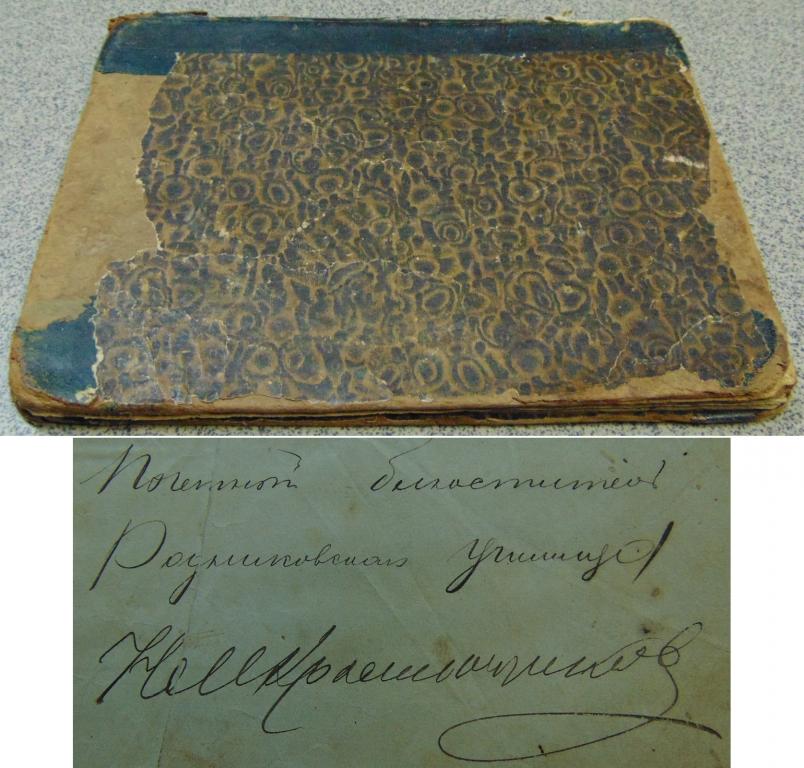 Почетный блюститель
Родниковскаго училища
НМКрасильщиков